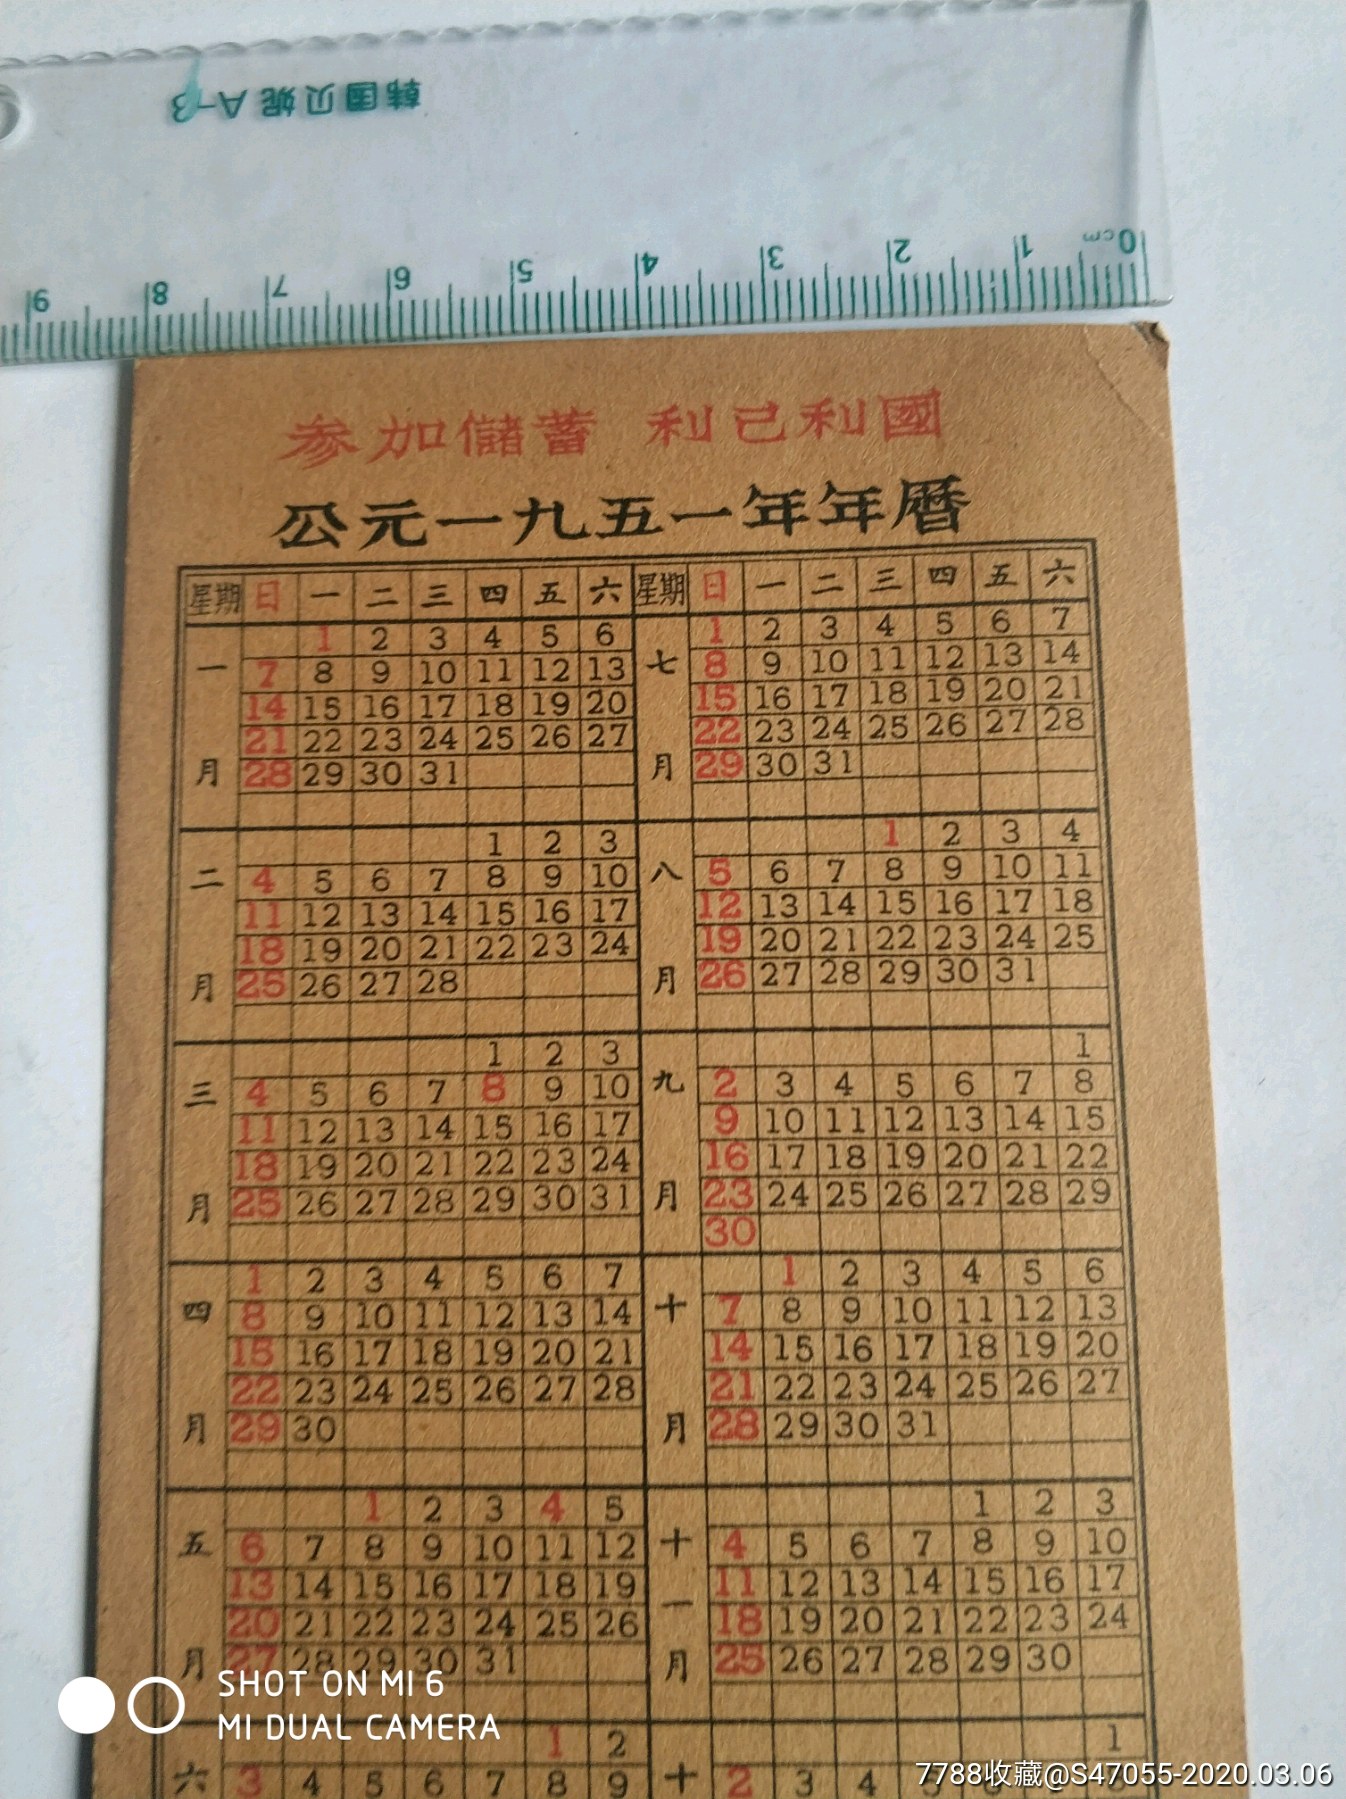 韩国贝妮 A-3
0cm 1 2 3 4 5 6 7 8 9
参加儲蓄 利己利國
公元一九五一年年曆
星期 日 一 二 三 四 五 六 星期 日 一 二 三 四 五 六
一月
1 2 3 4 5 6
7 8 9 10 11 12 13
14 15 16 17 18 19 20
21 22 23 24 25 26 27
28 29 30 31
七月
1 2 3 4 5 6 7
8 9 10 11 12 13 14
15 16 17 18 19 20 21
22 23 24 25 26 27 28
29 30 31
二月
1 2 3
4 5 6 7 8 9 10
11 12 13 14 15 16 17
18 19 20 21 22 23 24
25 26 27 28
八月
1 2 3 4
5 6 7 8 9 10 11
12 13 14 15 16 17 18
19 20 21 22 23 24 25
26 27 28 29 30 31
三月
1 2 3
4 5 6 7 8 9 10
11 12 13 14 15 16 17
18 19 20 21 22 23 24
25 26 27 28 29 30 31
九月
1
2 3 4 5 6 7 8
9 10 11 12 13 14 15
16 17 18 19 20 21 22
23 24 25 26 27 28 29
30
四月
1 2 3 4 5 6 7
8 9 10 11 12 13 14
15 16 17 18 19 20 21
22 23 24 25 26 27 28
29 30
十月
1 2 3 4 5 6
7 8 9 10 11 12 13
14 15 16 17 18 19 20
21 22 23 24 25 26 27
28 29 30 31
五月
1 2 3 4 5
6 7 8 9 10 11 12
13 14 15 16 17 18 19
20 21 22 23 24 25 26
27 28 29 30 31
十一月
1 2 3
4 5 6 7 8 9 10
11 12 13 14 15 16 17
18 19 20 21 22 23 24
25 26 27 28 29 30
六
1 2
3 4 5 6 7 8 9
十
1
2 3 4
SHOT ON MI 6
MI DUAL CAMERA
7788收藏@S47055-2020.03.06